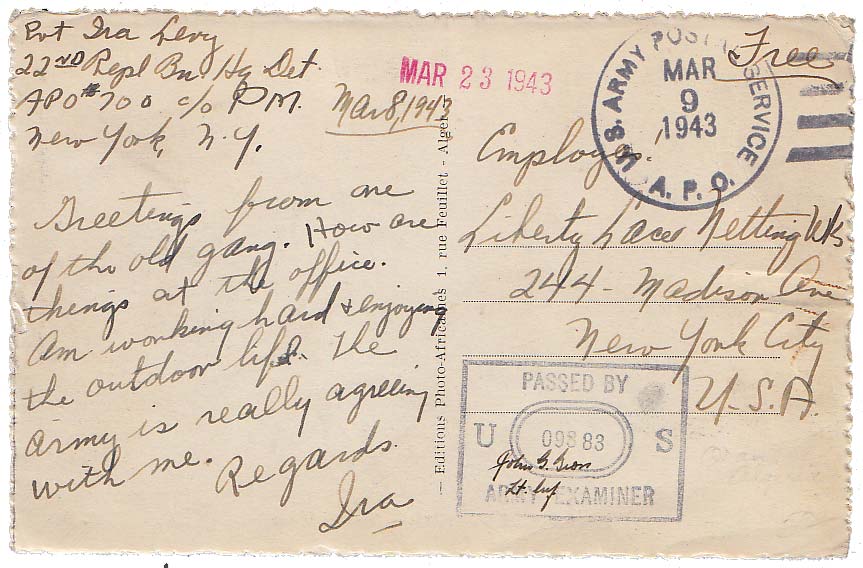 Pvt Ira Levy
22ND Repl Bn. Hq Det.
APO #700 c/o P.M.
New York, N.Y.
Mar 8, 1943
Greetings from one
of the old gang. How are
things at the office.
Am working hard & enjoying
the outdoor life. The
army is really agreeing
with me.
Regards.
Ira
— Editions Photo-Africaines 1, rue Feuillet - Alger
MAR 23 1943
U.S. ARMY POSTAL SERVICE
MAR
9
1943
A.P.O.
Free
Liberty Laces Netting Wks
244 - Madison Ave
New York City
U.S.A.
PASSED BY
U 09883 S
ARMY EXAMINER